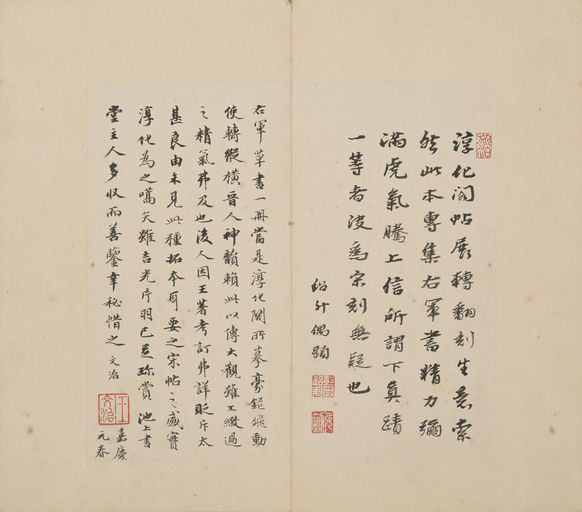 淳化閣帖展轉翻刻生意索
然此本專集右軍書精力彌
滿虎氣騰上信所謂下真蹟
一等者決為宋刻無疑也
偶題
右軍草書一冊當是淳化閣所摹豪鋩飛動
使轉縱橫晉人神韻賴此以傳大觀雖工緻過
之精氣弗及也後人因王著考訂弗詳貶斥太
甚良由未見此種拓本耳要之宋帖之盛實
淳化為之嚆矢雖吉光片羽已足珍賞 池上書
堂主人多收而善鑒幸秘惜之 文治
嘉慶
元春
王
文治